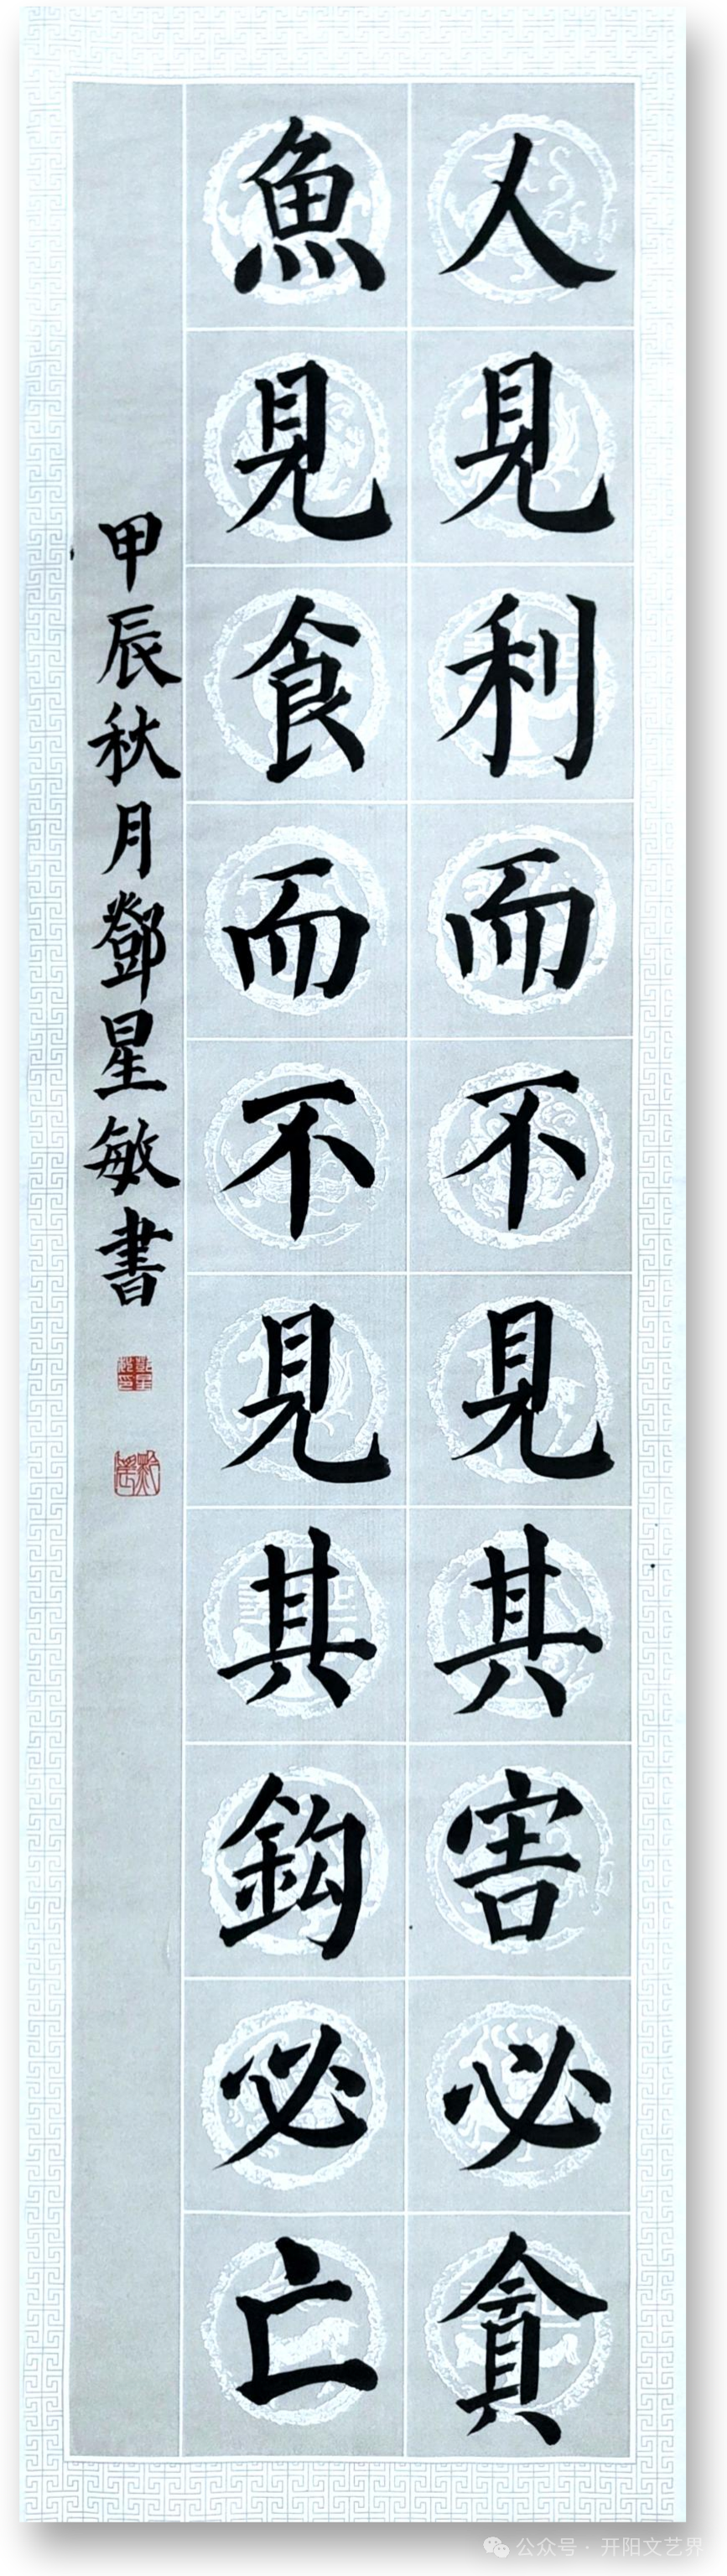 人見利而不見其害必貪
魚見食而不見其鈎必亡
甲辰秋月鄧星敏書
公众号 · 开阳文艺界